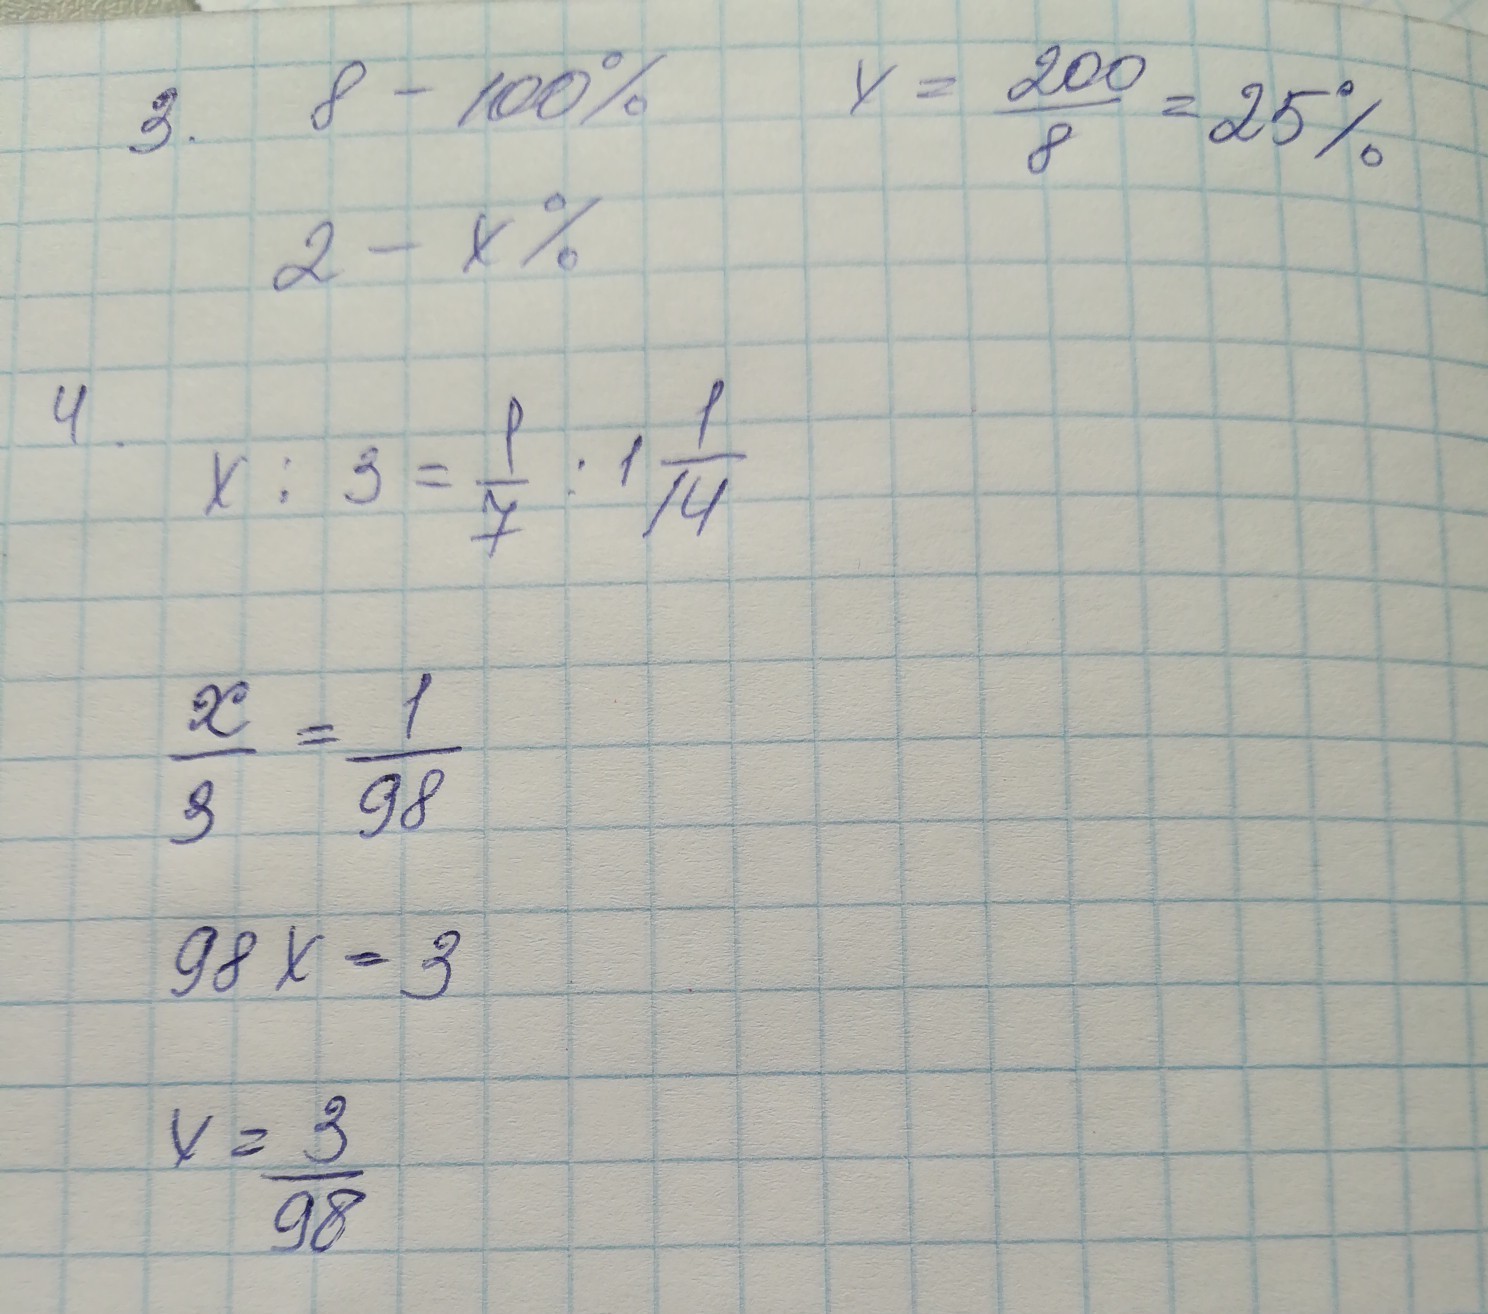 3. 8 - 100% x = 200/8 = 25%
2 - x%
4.
x : 3 = 1/7 : 1 1/14
x/3 = 1/98
98x = 3
x = 3/98